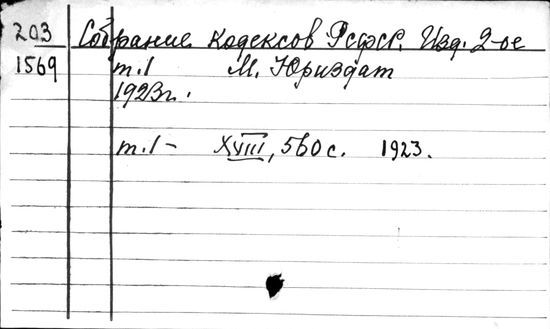 203 Собрание кодексов РСФСР. Изд. 2-ое
1569 т.1 М. Юриздат
1923г.
т.1 - XVIII, 560 с. 1923.